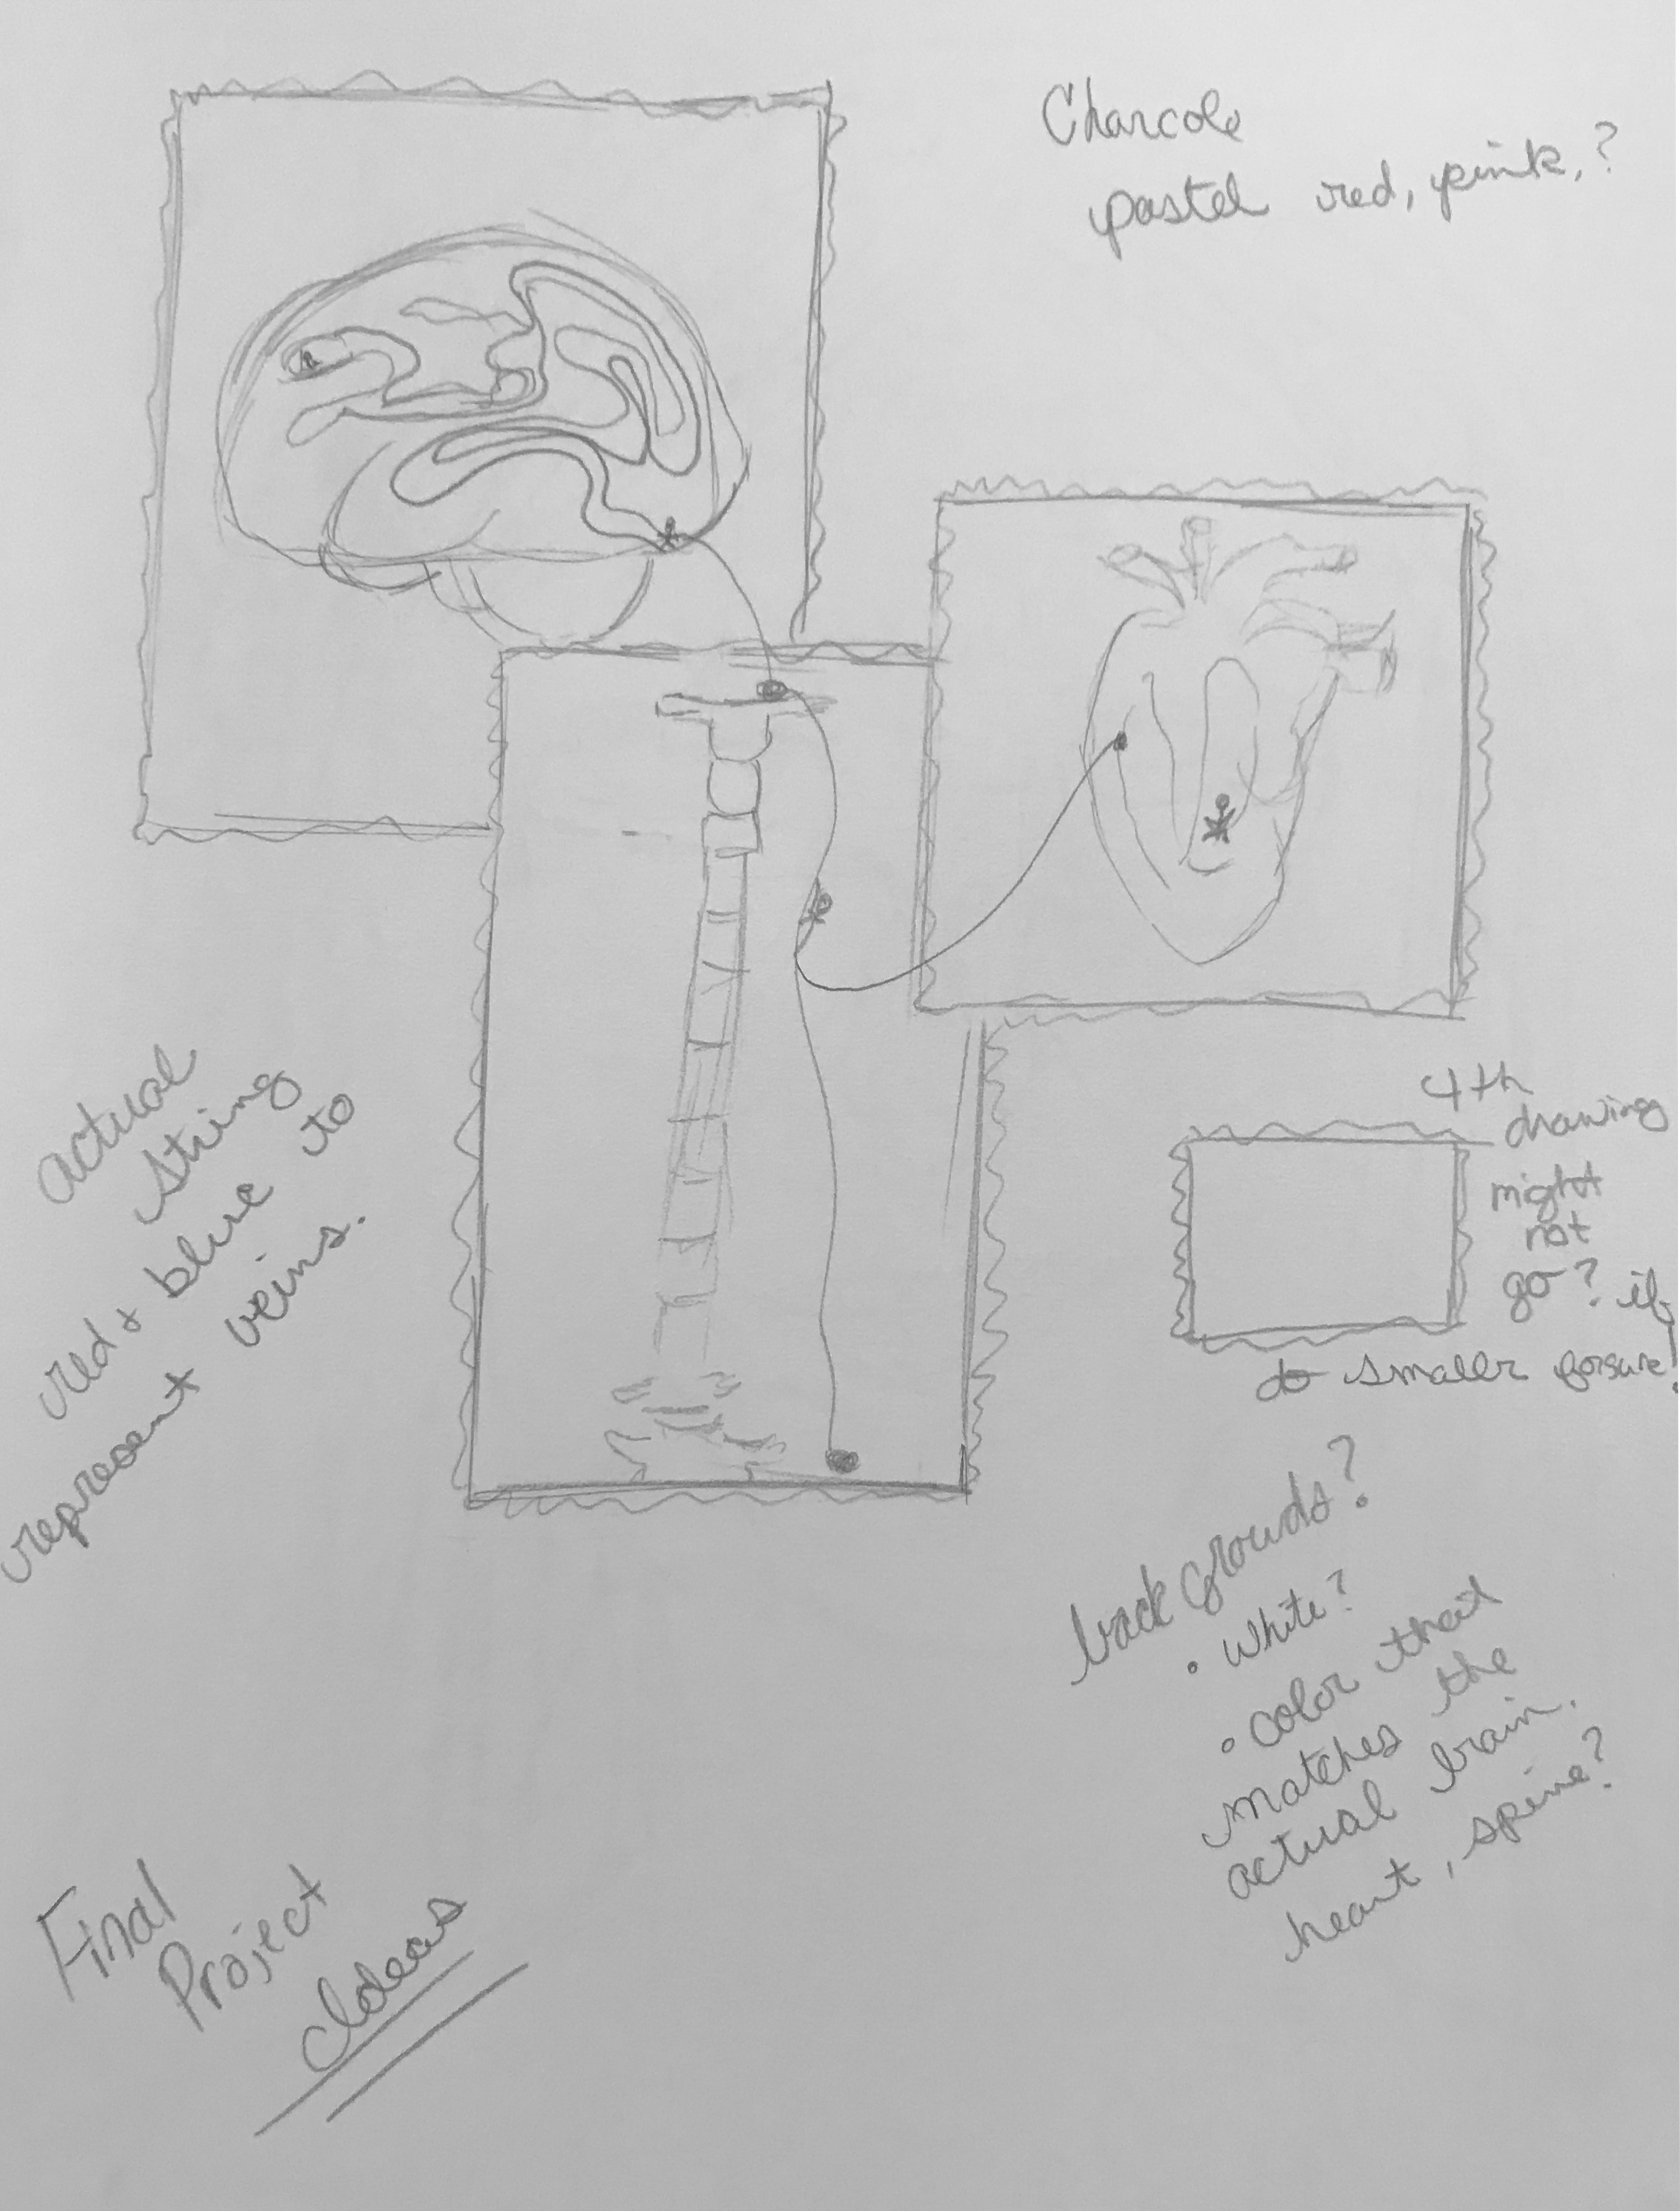 Charcole
pastel red, pink, ?
actual
string
red + blue to
represent veins.
4th
drawing
might
not
go? if
do smaller forsure!
back grounds?
• white?
• color that
matches the
actual brain,
heart, spine?
Final
Project
Ideas